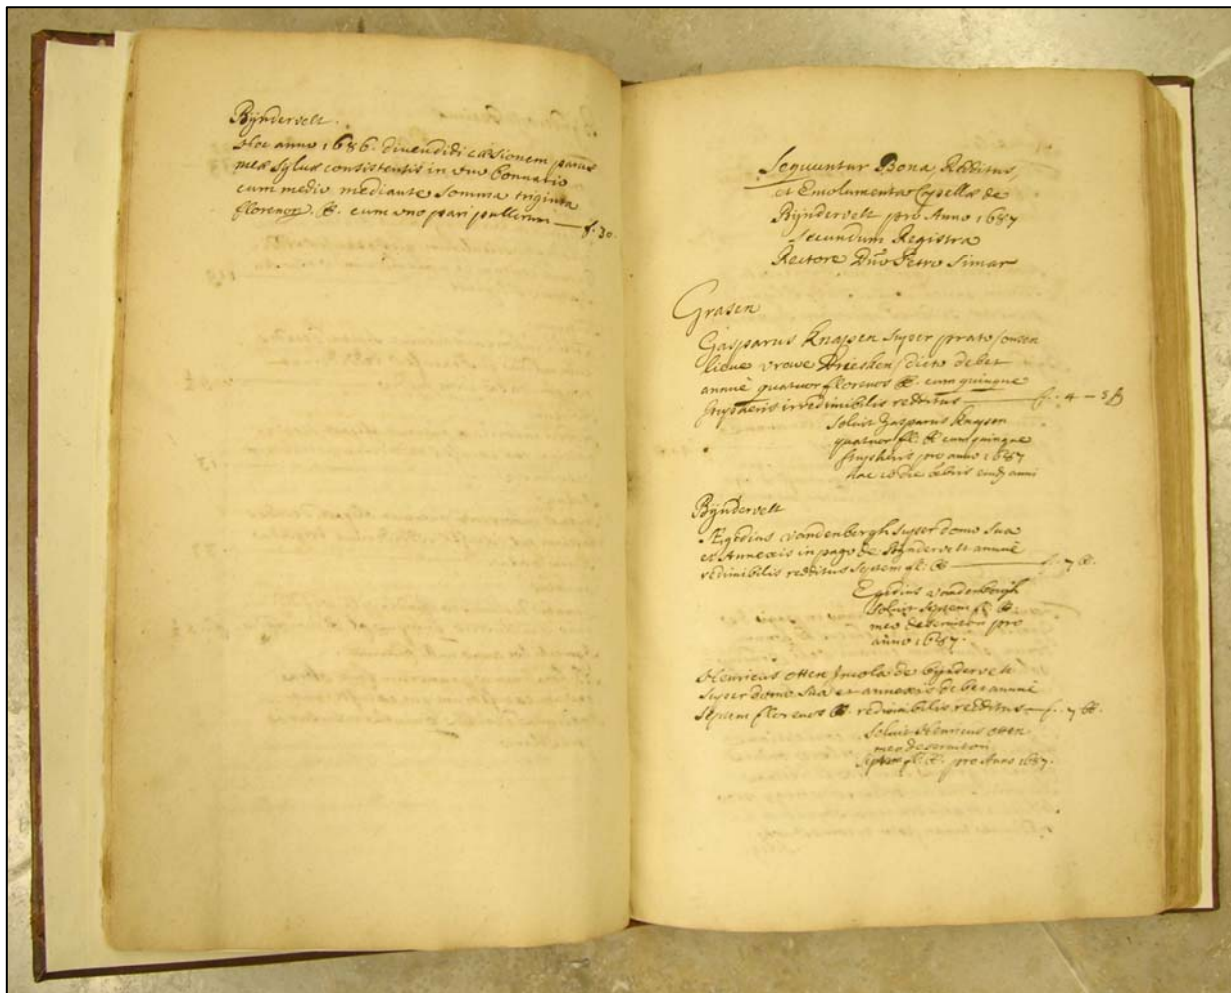 Bÿndervelt.
Hoc anno 1686. divendidi cæsionem
meæ sylvæ consistentis in uno bonnario
cum medio mediante somma triginta
florenor. B. cum uno pari pullorum — f. 30.
Sequuntur Bona, Redditus,
et Emolumenta Capellæ de
Bÿndervelt pro Anno 1687
secundum Registra
Rectore Dno Petro Simar
Grasen
Gasparus Knapen super prato /onsen
lieve vrouwe Driesken/ dicto debet
annuè quatuor florenos B. cum quinque
stupheris irredimibilis redditus — f. - 4 - 5
Solvit Gasparus Knapen
quatuor fl. B. cum quinque
stupheris pro anno 1687
hac die anni
Bÿndervelt
Ægidius vandenbergh super domo sua
et Annexis in pago de Bÿndervelt annuè
redimibilis redditus septem fl: B — f. - 7 B.
Egidius vandenbergh
solvit septem fl. B.
meo deservitori pro
anno 1687.
Henricus otten Incola de bÿndervelt
super domo sua et annexis debet annuè
septem florenos B. redimibilis redditus — f. - 7 B.
Solvit Henricus otten
meo deservitori
septem fl. B. pro Anno 1687.